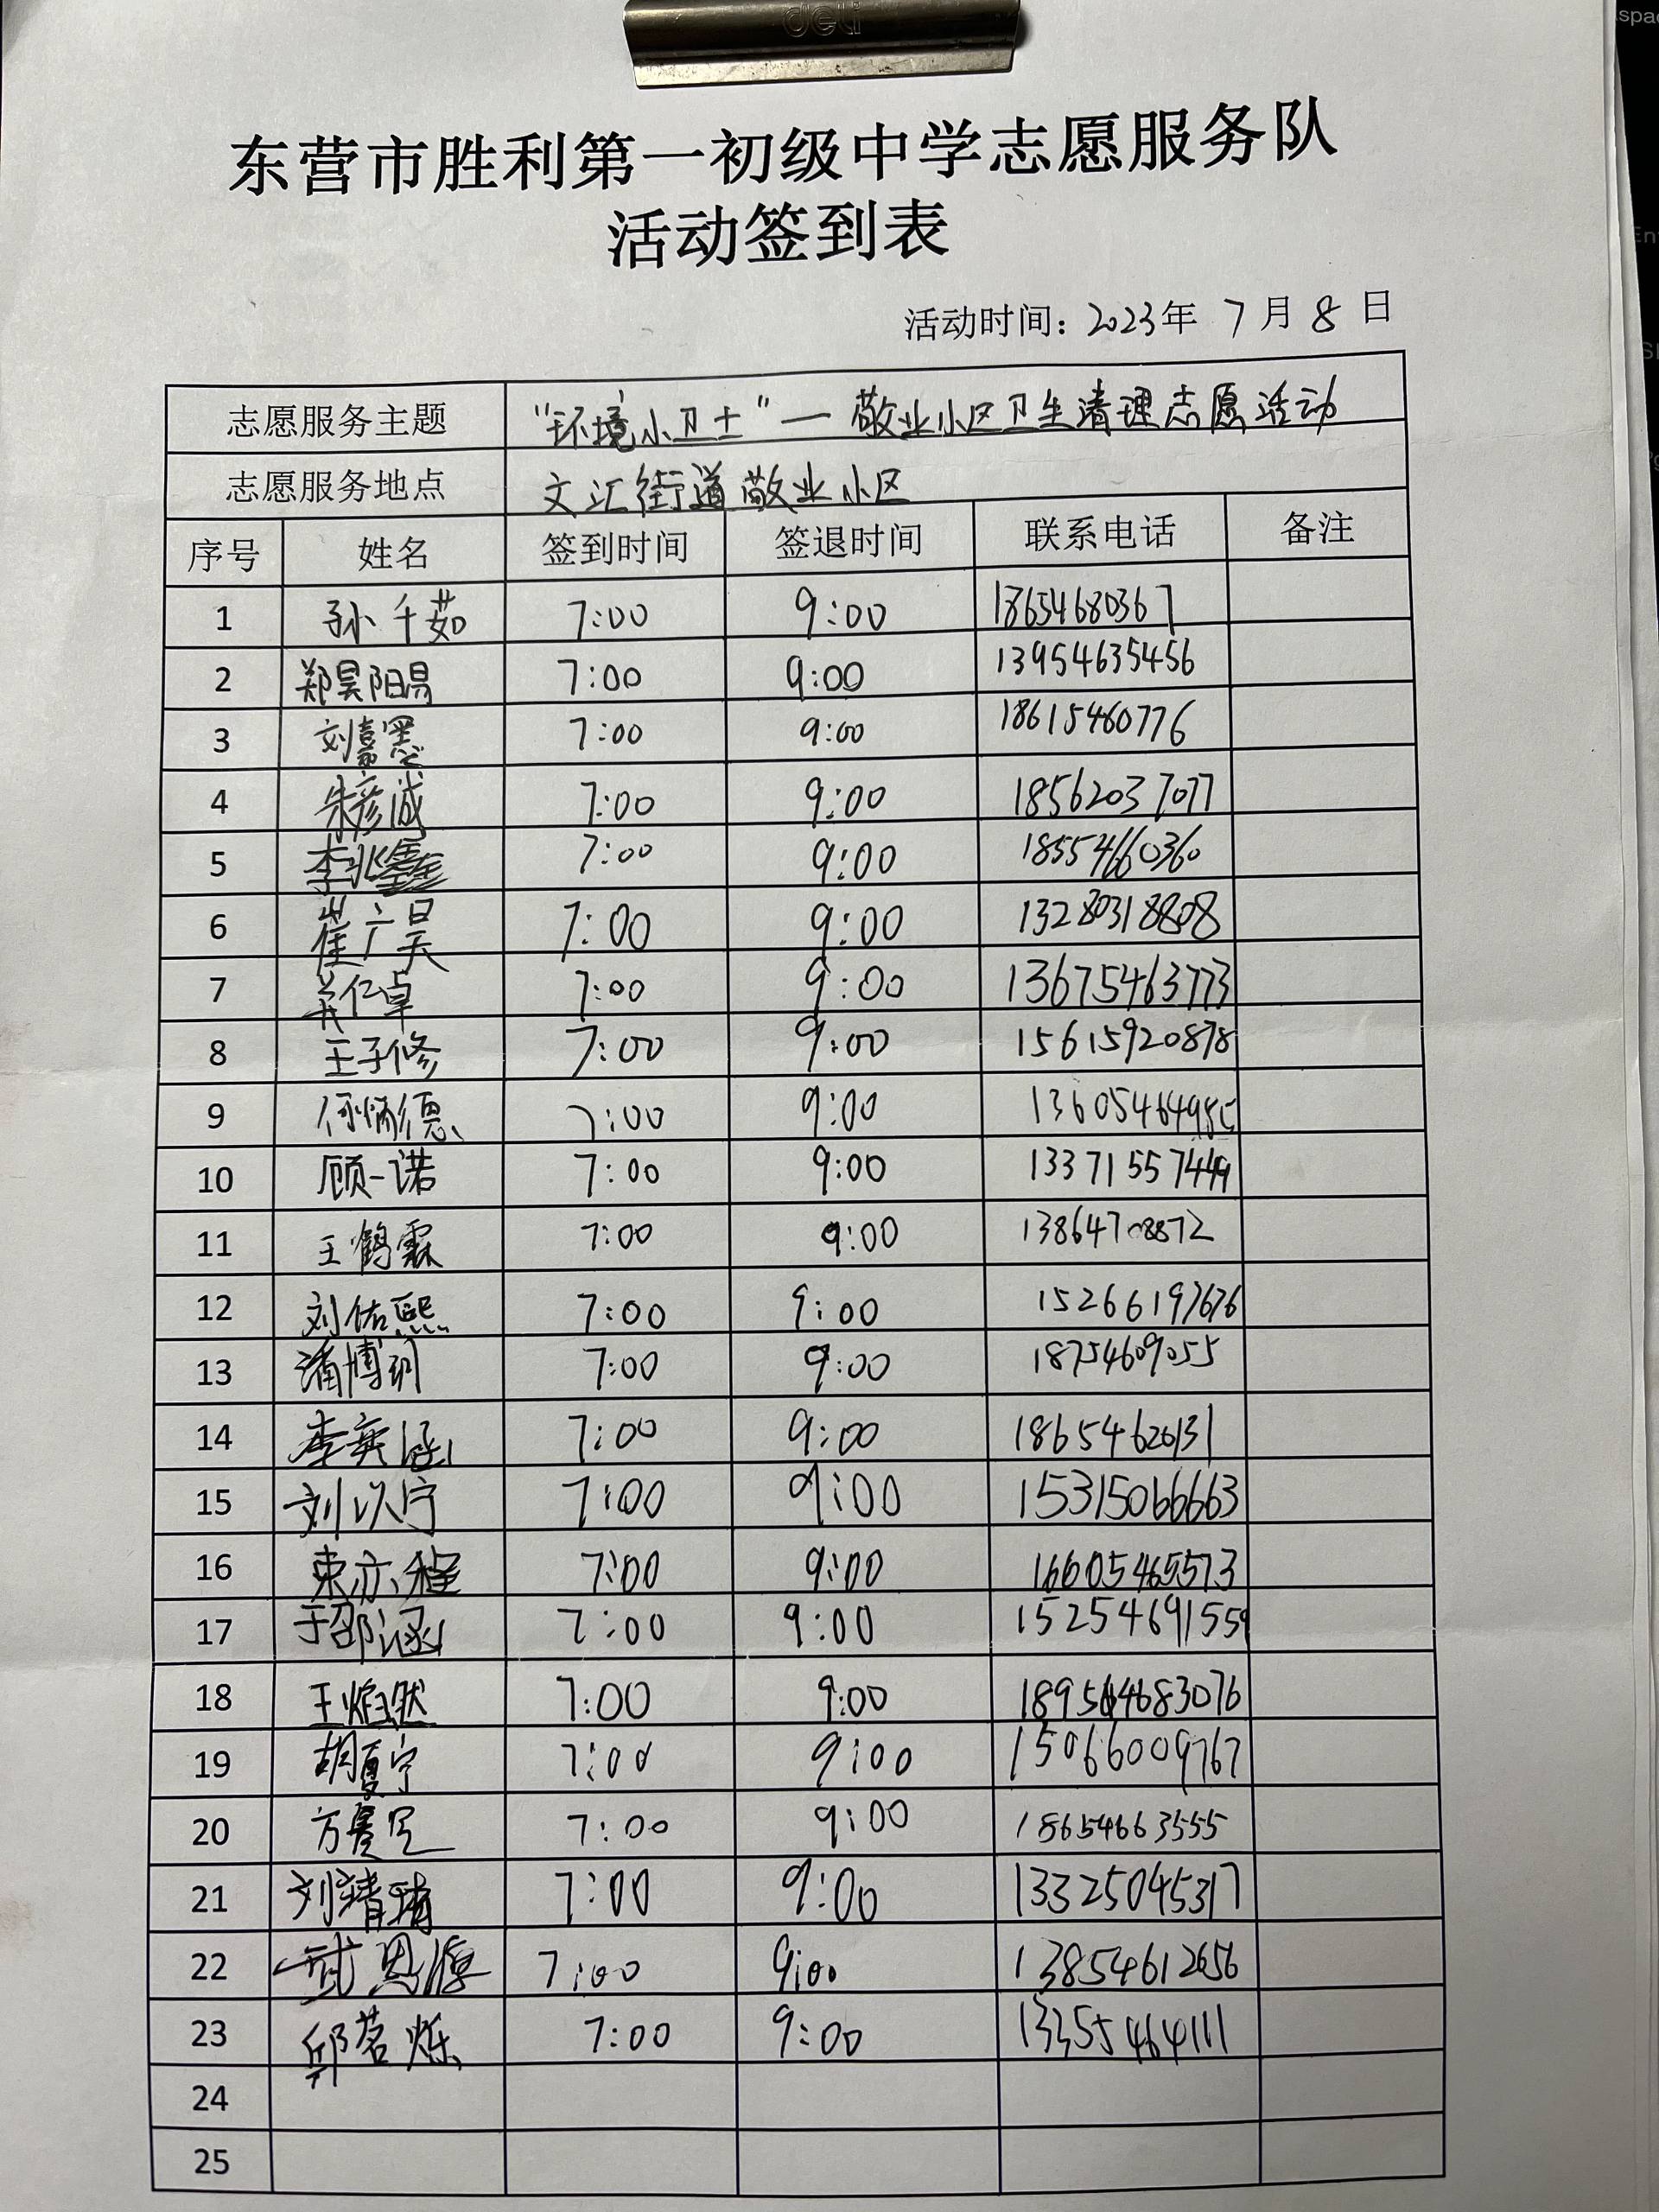 deli
东营市胜利第一初级中学志愿服务队
活动签到表
活动时间：2023年 7月 8 日
志愿服务主题 “环境小卫士”—敬业小区卫生清理志愿活动
志愿服务地点 文汇街道敬业小区
序号 姓名 签到时间 签退时间 联系电话 备注
1 孙千茹 7:00 9:00 18654680367
2 郑昊阳 7:00 9:00 13954635456
3 刘嘉墨 7:00 9:00 18615460776
4 朱彦诚 7:00 9:00 18562037077
5 李兆鑫 7:00 9:00 18554660360
6 崔广昊 7:00 9:00 13280318808
7 仁卓 7:00 9:00 13675463773
8 王子修 7:00 9:00 15615920878
9 7:00 9:00
10 顾一诺 7:00 9:00 13371557449
11 王鹤霖 7:00 9:00 13864708872
12 刘佑熙 7:00 9:00 15266197676
13 潘博玥 7:00 9:00 18754609055
14 李奕涵 7:00 9:00 18654620131
15 刘以宁 7:00 9:00 15315066663
16 束亦程 7:00 9:00 16605465573
17 于邵涵 7:00 9:00 15254691559
18 王焰然 7:00 9:00
19 胡夏宁 7:00 9:00 15066009767
20 方 7:00 9:00 18654663555
21 刘靖 7:00 9:00 13325045317
22 武恩源 7:00 9:00 13854612656
23 邱茗烁 7:00 9:00 13355464111
24
25